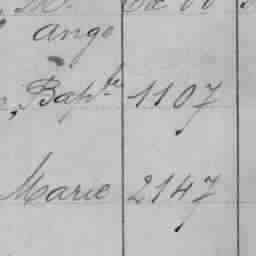 Ango
Bapte 1107
Marie 2147